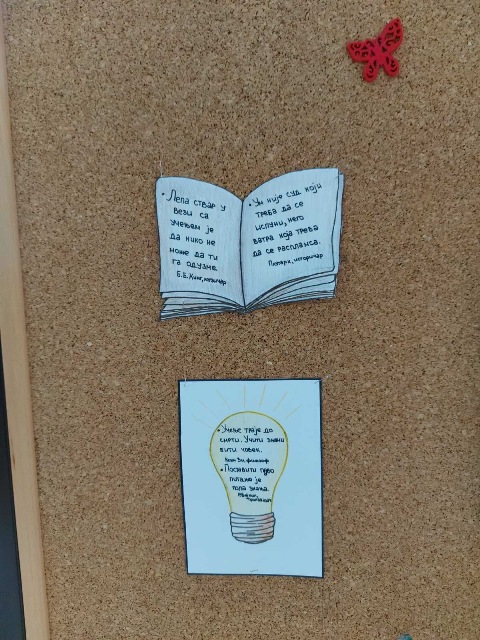 • Лепа ствар у
вези са
учењем је
да нико не
може да ти
га одузме.
Б.Б.Кинг, историчар
• Ум није суд који
треба да се
испуни, него
ватра која треба
да се распламса.
Плутарх, историчар
• Учење траје до
смрти. Учити значи
бити човек.
филозоф
• Поставити право
питање је
пола знања.